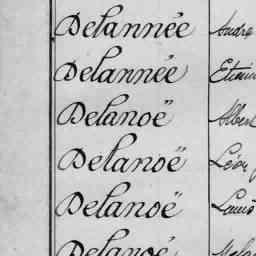 Delannée Andre
Delannée
Delanoë Albert
Delanoë Léon
Delanoë Louis
Delanoë